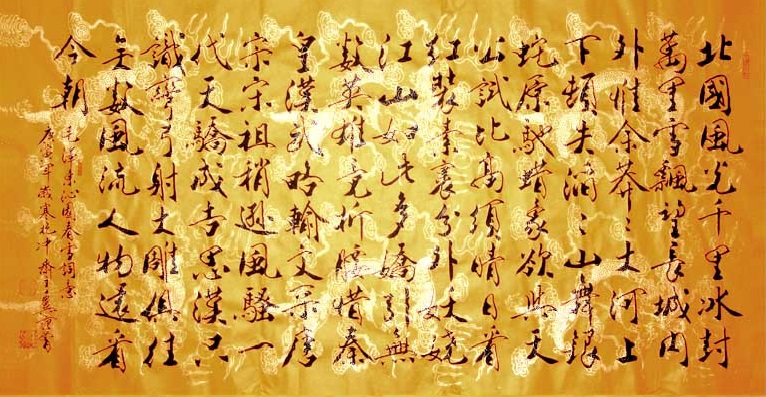 北國風光千里冰封
萬里雪飄望長城內
外惟余莽〻大河上
下頓失滔〻山舞銀
蛇原馳蠟象欲與天
公試比高須晴日看
紅裝素裹分外妖嬈
江山如此多嬌引無
數英雄競折腰惜秦
皇漢武略輸文采唐
宗宋祖稍遜風騷一
代天驕成吉思漢只
識彎弓射大雕俱往
矣數風流人物還看
今朝
毛澤東沁園春雪詞意
庚寅年歲寒